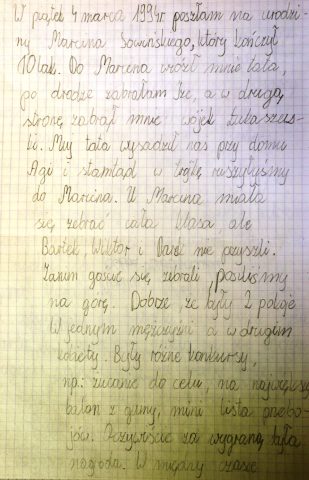 W piątek 4 marca 1994r poszłam na urodzi-
ny Marcina Sowińskiego, który kończył
10 lat. Do Marcina wiózł mnie tata,
po drodze zabrałam Izę, a w drugą
stronę zabrał mnie wójek
ki. Mój tata wysadził nas przy domu
Agi i stamtąd w trójkę ruszyłyśmy
do Marcina. U Marcina miała
się zebrać cała klasa, ale
Bartek, Wiktor i nie przyszli.
Zanim goście się zebrali, posiliśmy
na górę. Dobrze, że były 2 pokoje
W jednym mężczyźni a w drugim
kobiety. Były różne konkursy,
np.: rzucanie do celu, na największy
balon z gumy, mini lista przebo-
jów. Oczywiście za wygraną była
nagroda. W między czasie